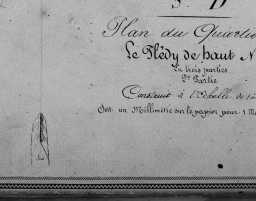 Plan du Quartier
Le Plédy de haut N
En trois parties
2e Partie
Construit à l'Echelle de 1 à
Ou un Millimètre sur le papier pour 1 Mè